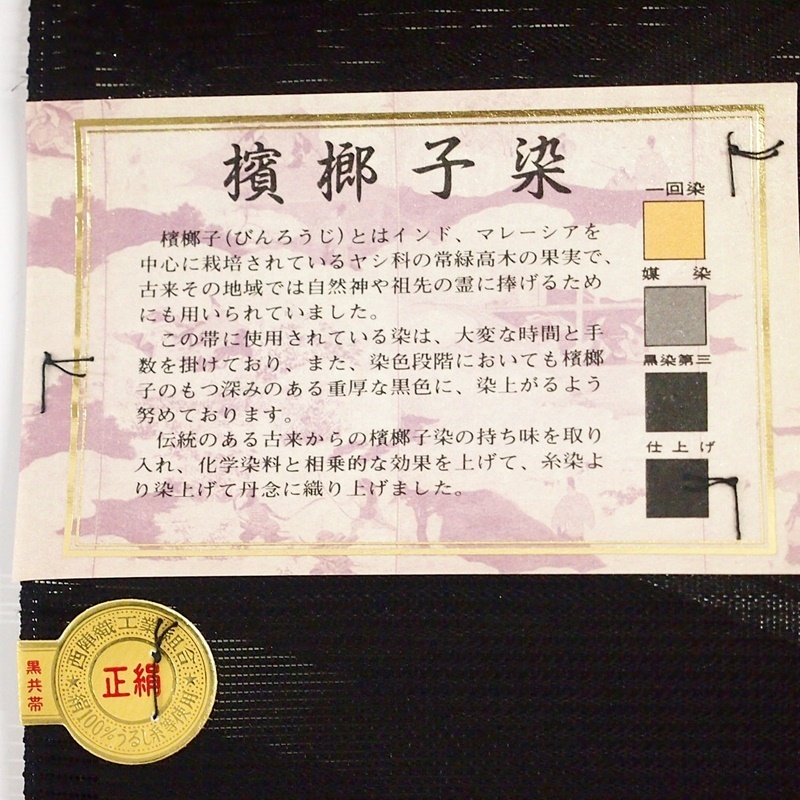 檳榔子染
檳榔子(びんろうじ)とはインド、マレーシアを
中心に栽培されているヤシ科の常緑高木の果実で、
古来その地域では自然神や祖先の霊に捧げるため
にも用いられていました。
この帯に使用されている染は、大変な時間と手
数を掛けており、また、染色段階においても檳榔
子のもつ深みのある重厚な黒色に、染上がるよう
努めております。
伝統のある古来からの檳榔子染の持ち味を取り
入れ、化学染料と相乗的な効果を上げて、糸染よ
り染上げて丹念に織り上げました。
一回染
媒 染
黒染第三
仕上げ
西陣織工業組合
正絹
絹100%うるし糸等使用
黒共帯